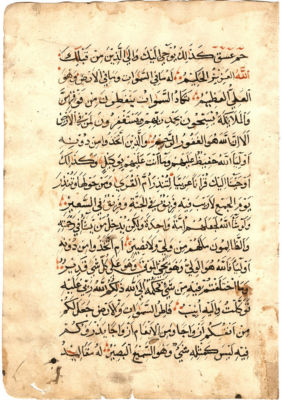 حم عسق كذلك يوحي اليك والى الذين من قبلك
الله العزيز الحكيم له ما في السموات وما في الارض وهو
العلي العظيم تكاد السموات يتفطرن من فوقهن
والملائكة يسبحون بحمد ربهم ويستغفرون لمن في الارض
الا ان الله هو الغفور الرحيم والذين اتخذوا من دونه
اولياء الله حفيظ عليهم وما انت عليهم بوكيل وكذلك
اوحينا اليك قرانا عربيا لتنذر ام القرى ومن حولها وتنذر
يوم الجمع لا ريب فيه فريق في الجنة وفريق في السعير
ولو شاء الله لجعلهم امة واحدة ولكن يدخل من يشاء في رحمته
والظالمون ما لهم من ولي ولا نصير ام اتخذوا من دونه
اولياء فالله هو الولي وهو يحيي الموتى وهو على كل شيء قدير
وما اختلفتم فيه من شيء فحكمه الى الله ذلكم الله ربي عليه
توكلت واليه انيب فاطر السموات والارض جعل لكم
من انفسكم ازواجا ومن الانعام ازواجا يذرؤكم
فيه ليس كمثله شيء وهو السميع البصير له مقاليد